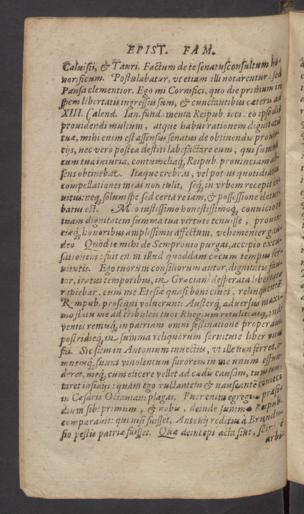 EPIST. FAM.
Caluisi, & Tauri. Factum de te senatusconsultum
norificum. Postulabatur, ut etiam illi notarentur: sed
Pansa clementior. Ego mi Cornifici, quo die primum in
spem libertatis ingressus sum, & cunctantibus ceteris ad
XIII. Calend. Ian. fundamenta Reipub. ieci. eo ipso die
providendi multum, atque habui rationem dignitatis
tuæ. mihi enim est assensus senatus de obtinendis provin
tijs, nec vero postea destiti labefactare eum, qui summa
cum tua iniuria, contumeliaq́; Reipub. provinciam ab
sens obtinebat. Itaque crebras, vel potius quotidianas
compellationes meas non tulit, seq́; in urbem recepit in
vitus: neq; solum spe sed certa re iam, & possessione deturbatus
est.
tuam dignitatem summa tua virtute tenuisse, provin
ciæq́; honoribus amplissimis affectum, vehementer gau
deo. Quod te mihi de Sempronio purgas, accipio excu
sationem: fuit enim illud quoddam cæcum tempus ser
vitutis. Ego tuorum consiliorum autor, dignitatisq́; fau
tor, iratus temporibus, in Græciam desperata libertate
rapiebar. cum me Etesiæ quasi boni cives, relinquentem
Rempub. prosequi noluerunt: Austerq́; adversus maxi
mo flatu me ad tribules tuos Rhegium retulit: atq; inde
ventis remisq́; in patriam omni festinatione properavi:
postridieq́; in summa reliquorum servitute liber unus
fui. Sic sum in Antonium invectus, ut ille non ferret, o
mnemq́; suum vinolentum furorem in me unum effun
deret, meq́; cum elicere vellet ad cædis causam, tum
taret insidijs: quem ego ructantem & nauseantem conieci
in Cæsaris Octaviani plagas. Puer enim egregius præsi
dium sibi primum, & nobis, deinde summæ Reipub.
comparavit: qui nisi fuisset, Antonij reditus à Brundu
sio pestis patriæ fuisset. Quæ deinceps acta sint, scire te
arbi